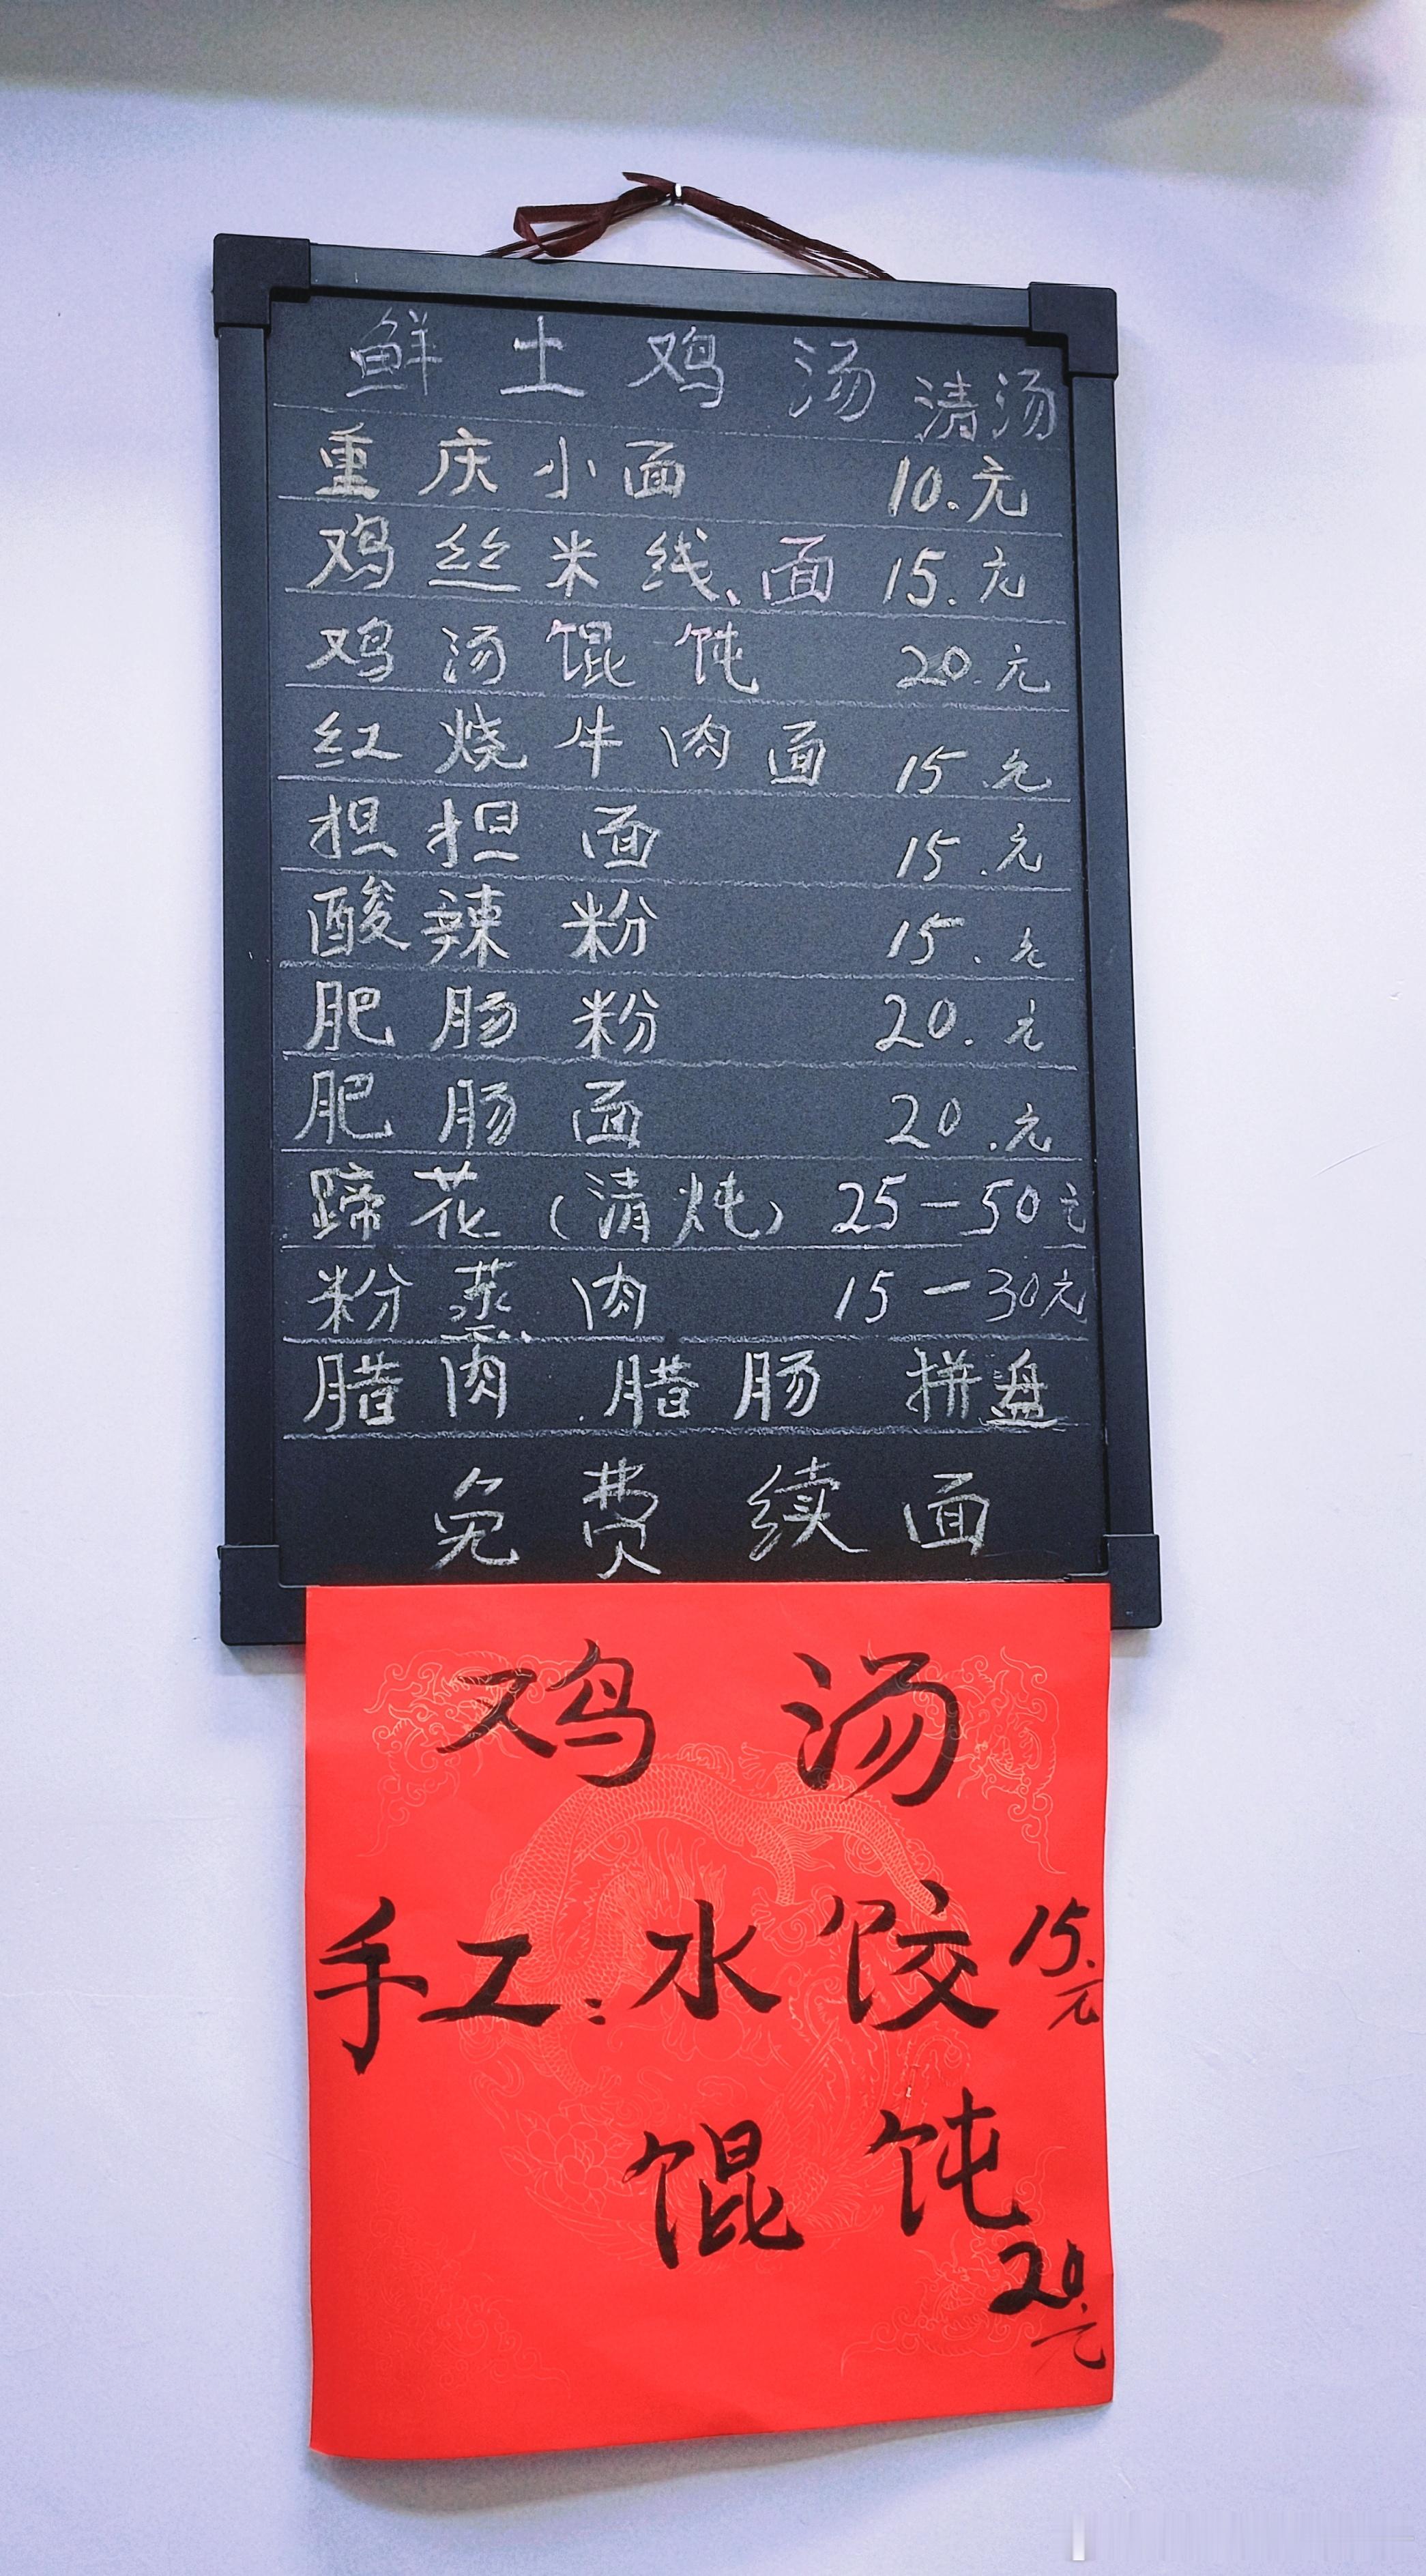 鲜土鸡汤 清汤
重庆小面 10.元
鸡丝米线、面 15.元
鸡汤馄饨 20.元
红烧牛肉面 15.元
担担面 15.元
酸辣粉 15.元
肥肠粉 20.元
肥肠面 20.元
蹄花(清炖) 25-50元
粉蒸肉 15-30元
腊肉.腊肠 拼盘
免费续面
鸡汤
手工:水饺 15.元
馄饨
20.元